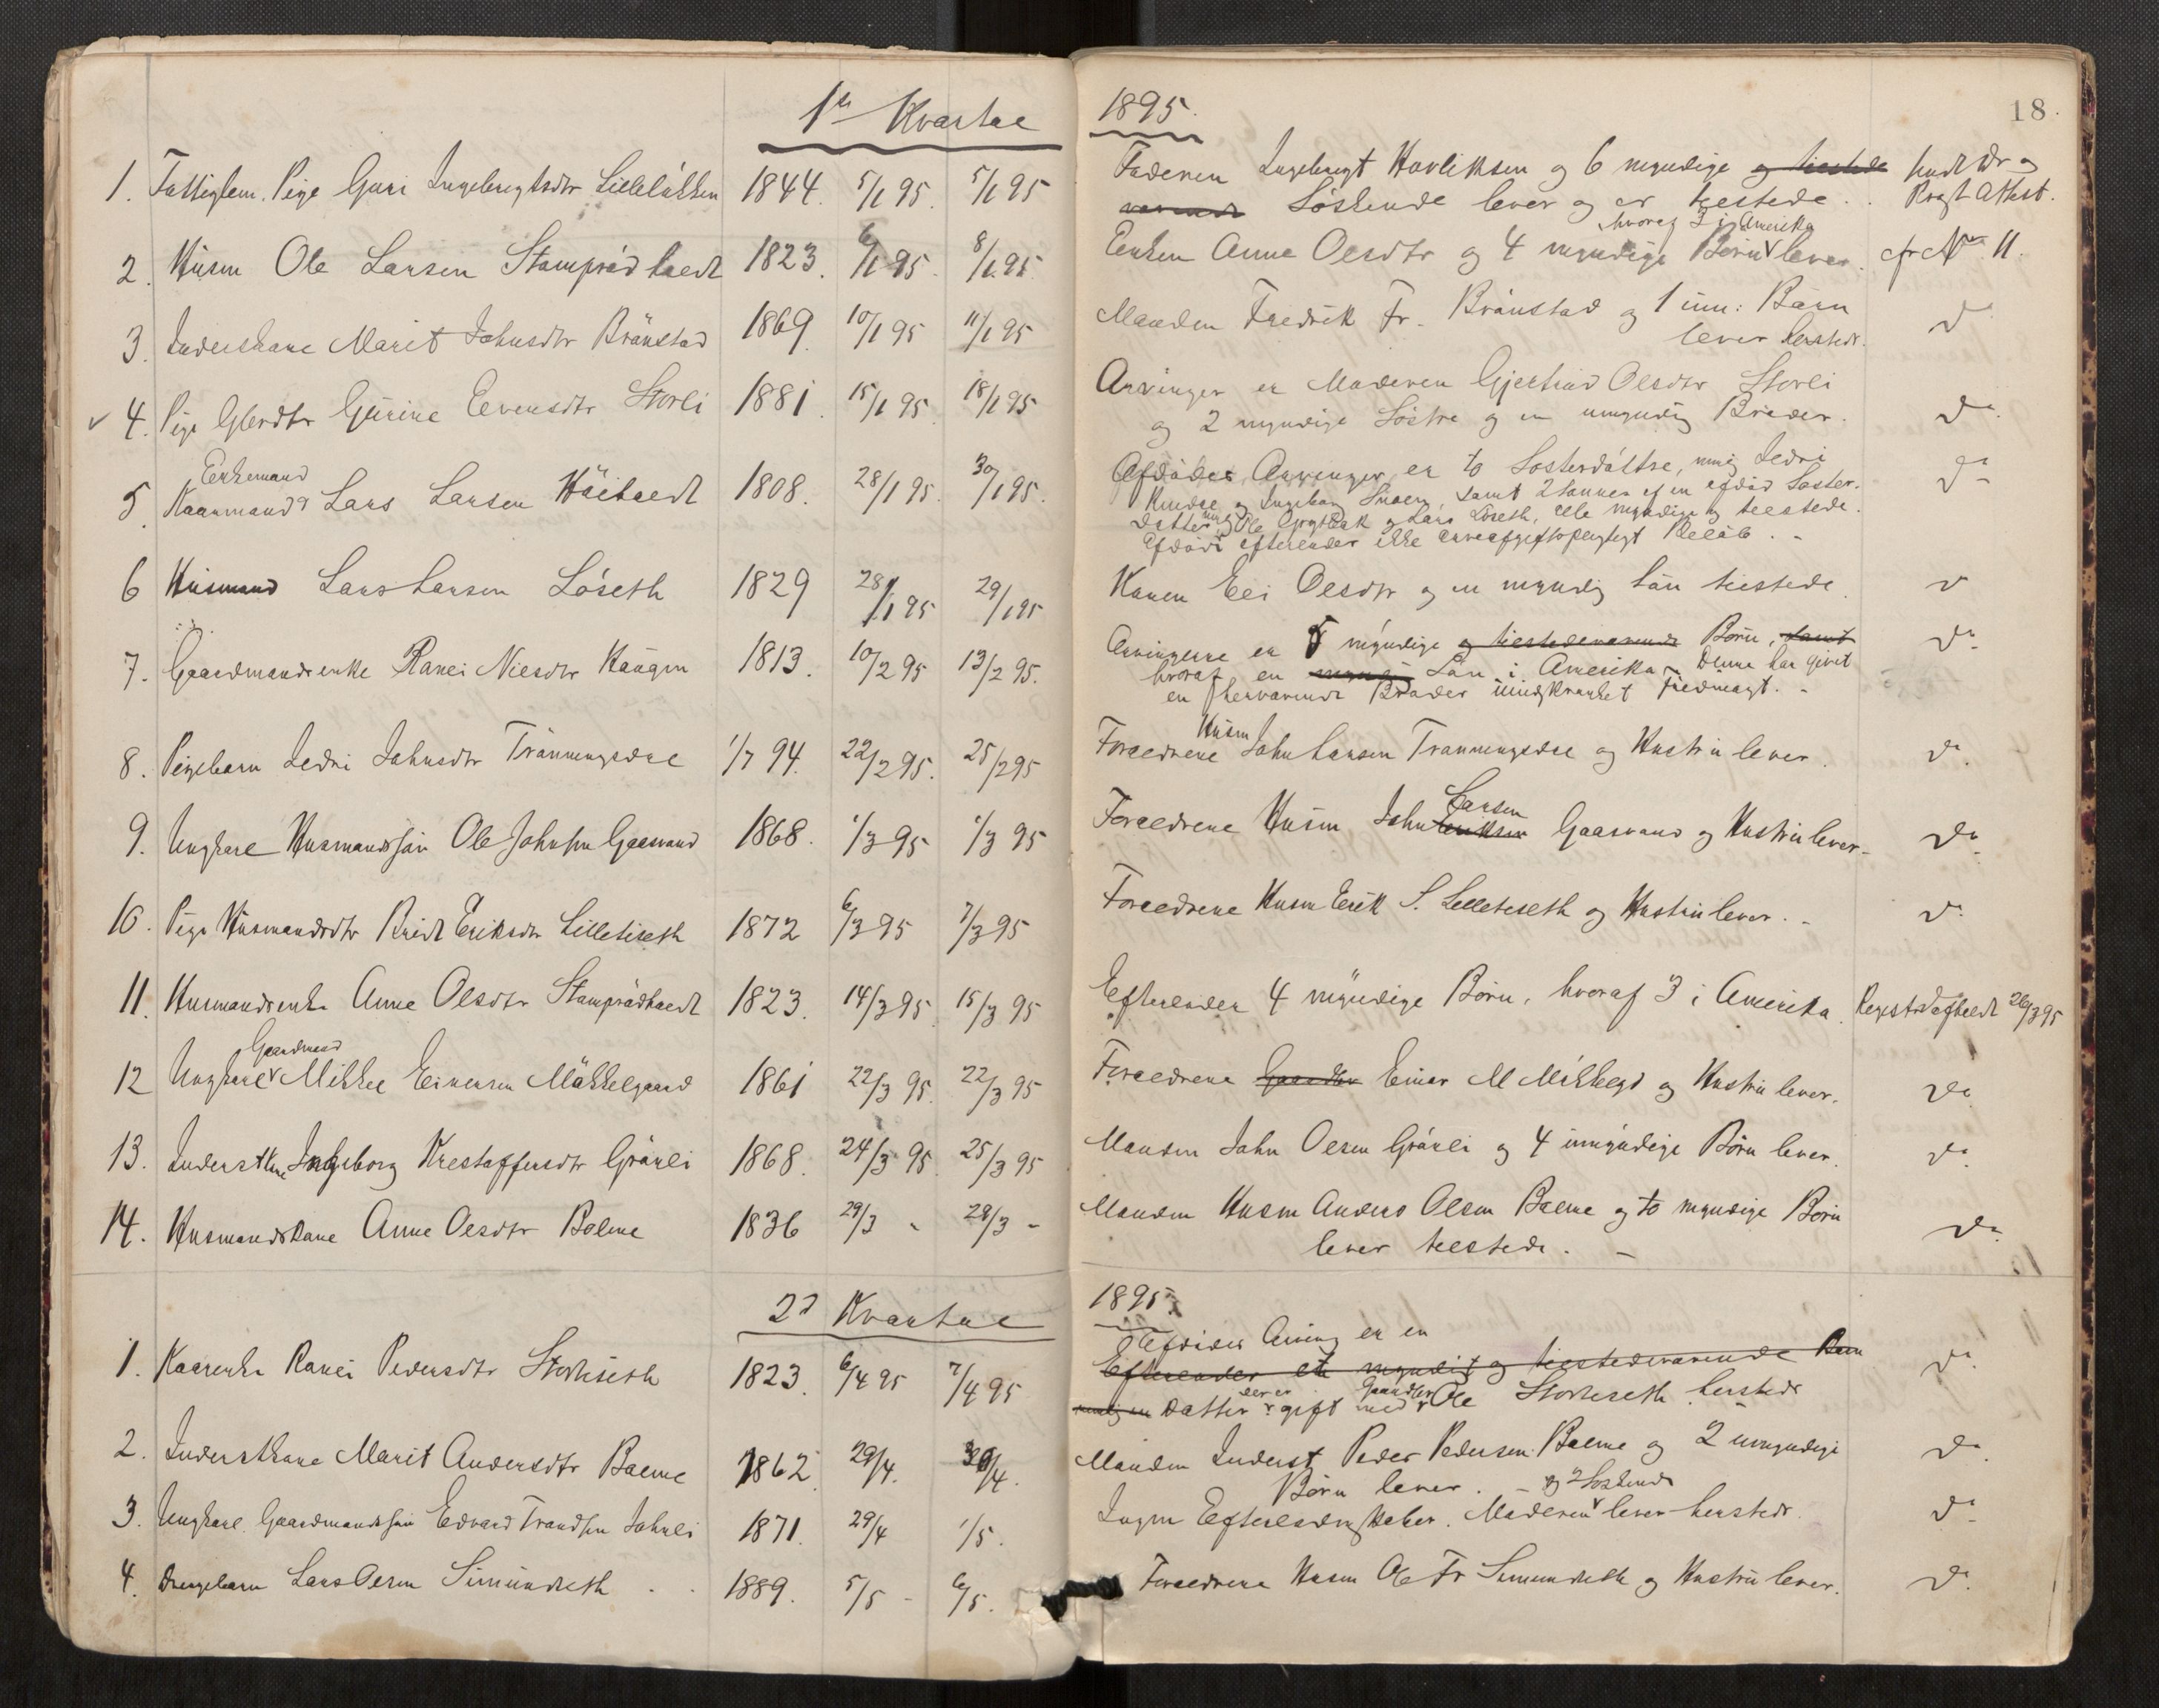 1ste Kvartal
1. Fattiglem. Pige Guri Ingebrigtsdtr Lilleløkken 1844. 5/1 95. 5/1 95
2. Husm Ole Larsen Stamprødhaedt 1823. 6/1 95. 8/1 95.
3. Inderstkane Marit Johnsdtr Brænstad 1869 10/1 95 11/1 95
4. Pige Gbrdtr Gurine Evensdtr Storli 1881. 15/1 95. 18/1 95
Enkemand
5. Kaarmand Lars Larsen Höibaedt 1808. 28/1 95. 30/1 95.
6 Husmand Lars Larsen Løseth 1829 28/1 95 29/1 95
7. Gaardmandsenke Ranei Nilsdtr Haugen 1813. 10/2 95 13/2 95.
8. Pigebarn Sedri Johnsdtr Trønningsdal 1/7 94. 22/2 95. 25/2 95
9. Ungkarl Husmandssøn Ole Johnsen Gaasvand 1868. 1/3 95 1/3 95
10. Pige Husmandsdtr Beret Eriksdtr Lilleliseth 1872 6/3 95 7/3 95
11. Husmandsenke Anne Olsdtr Stamprødhaedt 1823. 14/3 95. 15/3 95
Gaardmand
12 Ungkarl Mikkel Einersen Mökkelgaard 1861 22/3 95. 22/3 95
13. Inderstkne Ingeborg Krestoffersdtr Grønli 1868. 24/3 95 25/3 95
14. Husmandskane Anne Olsdtr Bolme 1836 29/3 - 29/3 -
2d Kvartal
1. Kaarenke Ranei Pedersdtr Storliseth 1823. 6/4 95 7/4 95
2. Inderstkane Marit Andersdtr Bolme 1862 29/4. 30/4.
3. Ungkarl. Gaardmandssøn Edvard Trondsen Johnli 1871. 29/4 1/5.
4. Drengebarn Lars Olsen Simundseth 1889. 5/5 - 6/5.
1895.
18.
Faderen Ingebrigt Havliksen og 6 myndige og tilstede
værende Søskende lever og er tilstede.
hvoraf 3 i Amerika
Enken Anne Olsdtr og 4 myndige Børn lever. cfr No 11.
Manden Fredrik Fr. Brønstad og 1 um: Barn
lever herstede. do
Arvinger er Moderen Gjertrud Olsdtr Storli
og 2 myndige Søstre og en umyndig Broder. do.
Afdødes Arvinger er to Søsterdøttre, nmlg Sedri
og Ingebor samt 2 Sønner af en afdød Søster- do
datter nmlg Ole og Lars Løseth, alle myndige og tilstede.
Afdøde efterlader ikke arveafgiftspligtigt Beløb. -
Kanen Eli Olsdtr og en myndig Søn tilstede. do
Arvingerne er 5 myndige og tilstedeværende Børn, samt do.
hvoraf en Søn i Amerika - Denne har givet
en herværende Broder uindskrænket Fuldmagt. -
Husm
Forældrene John Larsen Trønningsdal og Hustru lever. do.
Larsen
Forældrene Husm John Eriksen Gaasvand og Hustru lever- do.
Forældrene Husm Erik S. Lilleliseth og Hustru lever. - do
Efterlader 4 myndige Børn, hvoraf 3 i Amerika. 26/3 95
Forældrene Gaardbr Einar M Mökkelgd og Hustru lever. do
Manden John Olsen Grønli og 4 umyndige Børn lever. do.
Manden Husm Anders Olsen Bolme og to myndige Børn
lever tilstede. - do.
1895.
Afdødes Arving er en
Efterlader et myndigt og tilstedeværende Barn do.
nemlig en Datter der er gift med Gaardbr Ole Storliseth herstede
Manden Inderst Peder Pedersen Bolme og 2 umyndige do.
Børn lever. -
og 2 Søskende
Ingen Efterladenskaber. Moderen lever herstede. do
Forældrene Husm Ole Fr Simundseth og Hustru lever. do.